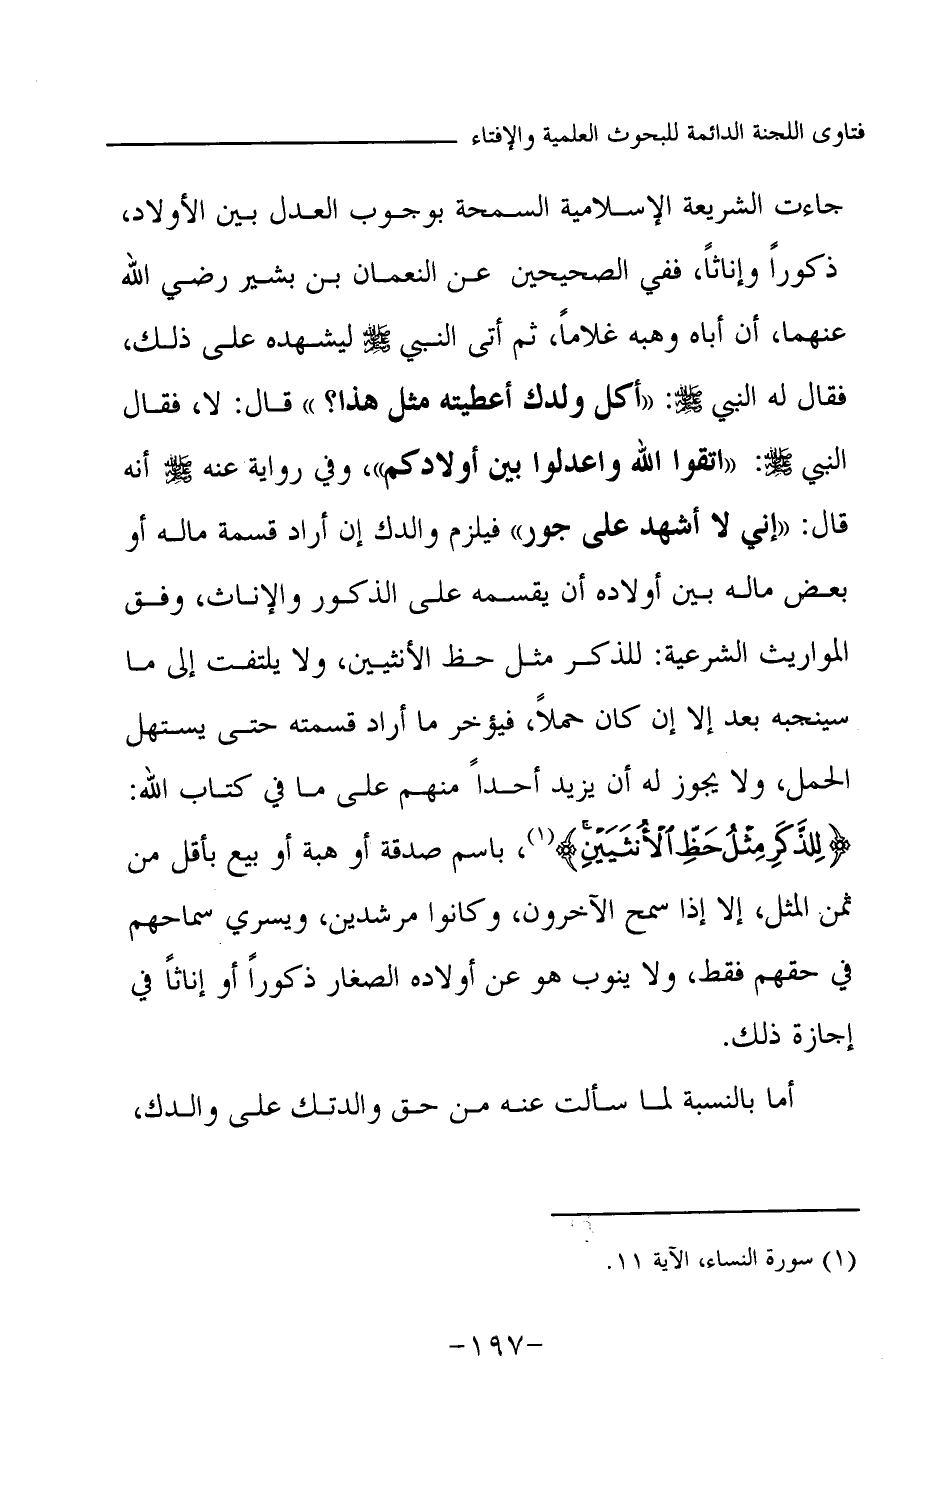 فتاوى اللجنة الدائمة للبحوث العلمية والإفتاء
جاءت الشريعة الإسلامية السمحة بوجوب العدل بين الأولاد،
ذكوراً وإناثاً، ففي الصحيحين عن النعمان بن بشير رضي الله
عنهما، أن أباه وهبه غلاماً، ثم أتى النبي ﷺ ليشهده على ذلك،
فقال له النبي ﷺ: «أكل ولدك أعطيته مثل هذا؟» قال: لا، فقال
النبي ﷺ: «اتقوا الله واعدلوا بين أولادكم»، وفي رواية عنه ﷺ أنه
قال: «إني لا أشهد على جور» فيلزم والدك إن أراد قسمة ماله أو
بعض ماله بين أولاده أن يقسمه على الذكور والإناث، وفق
المواريث الشرعية: للذكر مثل حظ الأنثيين، ولا يلتفت إلى ما
سينجبه بعد إلا إن كان حملاً، فيؤخر ما أراد قسمته حتى يستهل
الحمل، ولا يجوز له أن يزيد أحداً منهم على ما في كتاب الله:
﴿لِلذَّكَرِ مِثْلُ حَظِّ ٱلْأُنثَيَيْنِ ۚ﴾(١)، باسم صدقة أو هبة أو بيع بأقل من
ثمن المثل، إلا إذا سمح الآخرون، وكانوا مرشدين، ويسري سماحهم
في حقهم فقط، ولا ينوب هو عن أولاده الصغار ذكوراً أو إناثاً في
إجازة ذلك.
أما بالنسبة لما سألت عنه من حق والدتك على والدك،
(١) سورة النساء، الآية ١١.
-١٩٧-